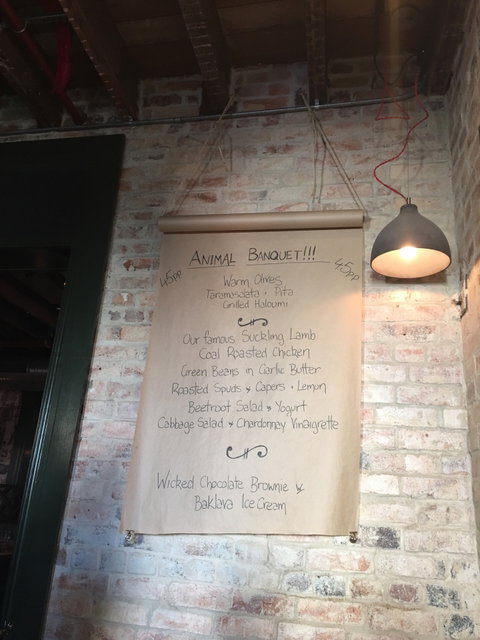 ANIMAL BANQUET!!!
45pp
45pp
Warm Olives
Taramasalata + Pita
Grilled Haloumi
Our famous Suckling Lamb
Coal Roasted Chicken
Green Beans in Garlic Butter
Roasted Spuds & Capers + Lemon
Beetroot Salad & Yogurt
Cabbage Salad & Chardonnay Vinaigrette
Wicked Chocolate Brownie &
Baklava Ice Cream